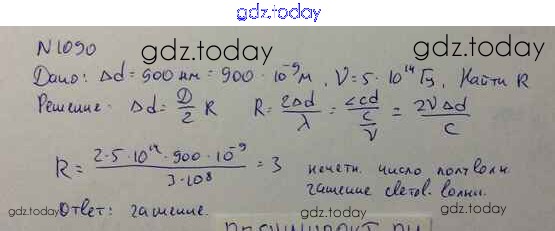 gdz.today
N1090
gdz.today
gdz.today
Дано: Δd = 900 нм = 900 · 10⁻⁹ м, ν = 5 · 10¹⁴ Гц, Найти R
Решение: Δd = D/2 R R = 2Δd/λ = 2cd/(c/ν) = 2νΔd/c
R = (2·5·10¹⁴·900·10⁻⁹)/(3·10⁸) = 3 нечетн. число полуволн
гашение светов. волны.
gdz.today
Ответ: гашение.
gdz.today
gdz.today